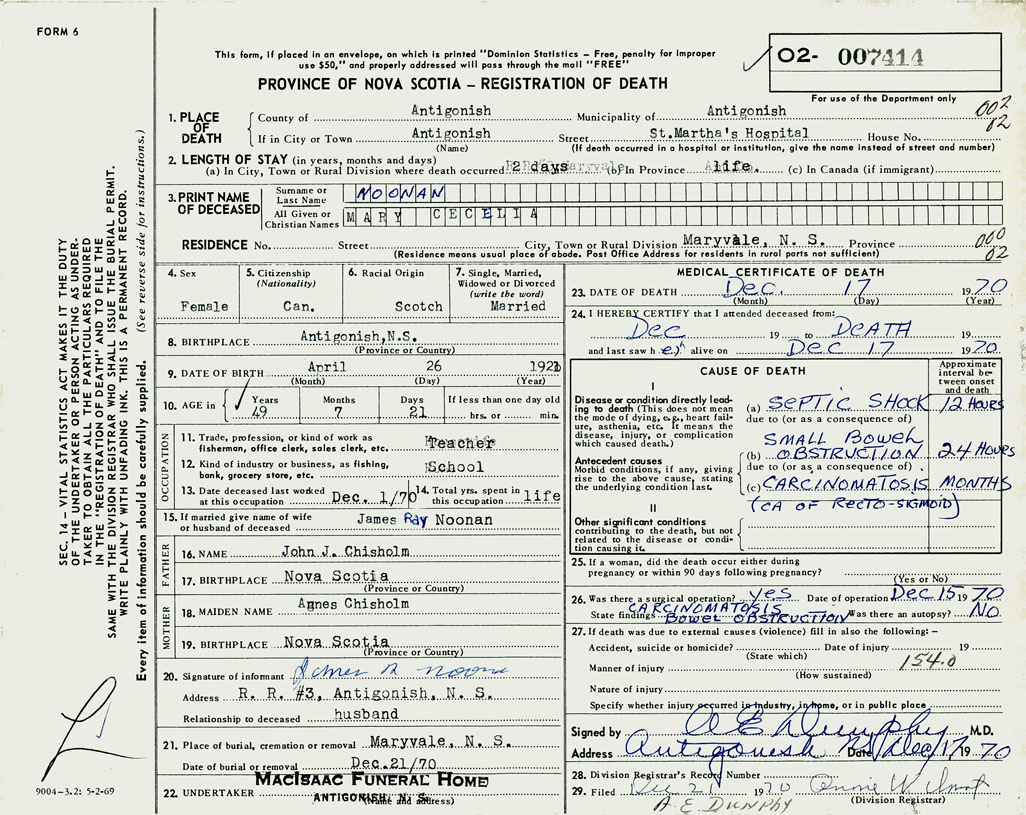 FORM 6
This form, if placed in an envelope, on which is printed "Dominion Statistics – Free, penalty for improper
use $50," and properly addressed will pass through the mail "FREE"
PROVINCE OF NOVA SCOTIA – REGISTRATION OF DEATH
02- 007414
For use of the Department only
002
02
1. PLACE OF DEATH
County of Antigonish Municipality of Antigonish
If in City or Town Antigonish Street St.Martha's Hospital House No.
(Name) (If death occurred in a hospital or institution, give the name instead of street and number)
2. LENGTH OF STAY (in years, months and days)
(a) In City, Town or Rural Division where death occurred 2 days (b) In Province life. (c) In Canada (if immigrant)
3. PRINT NAME OF DECEASED
Surname or Last Name NOONAN
All Given or Christian Names MARY CECELIA
RESIDENCE No. Street City, Town or Rural Division Maryvale, N. S. Province
(Residence means usual place of abode. Post Office Address for residents in rural parts not sufficient)
000
02
4. Sex
Female
5. Citizenship
(Nationality)
Can.
6. Racial Origin
Scotch
7. Single, Married,
Widowed or Divorced
(write the word)
Married
8. BIRTHPLACE Antigonish,N.S.
(Province or Country)
9. DATE OF BIRTH April 26 1921
(Month) (Day) (Year)
10. AGE in
Years Months Days If less than one day old
49 7 21 hrs. or min.
OCCUPATION
11. Trade, profession, or kind of work as
fisherman, office clerk, sales clerk, etc. Teacher
12. Kind of industry or business, as fishing,
bank, grocery store, etc. School
13. Date deceased last worked
at this occupation Dec. 1/70
14. Total yrs. spent in
this occupation life
15. If married give name of wife
or husband of deceased James Ray Noonan
FATHER
16. NAME John J. Chisholm
17. BIRTHPLACE Nova Scotia
(Province or Country)
MOTHER
18. MAIDEN NAME Agnes Chisholm
19. BIRTHPLACE Nova Scotia
(Province or Country)
20. Signature of informant James R Noonan
Address R. R. #3, Antigonish, N. S.
Relationship to deceased husband
21. Place of burial, cremation or removal Maryvale, N. S.
Date of burial or removal Dec.21/70
22. UNDERTAKER MACISAAC FUNERAL HOME
ANTIGONISH, N. S.
(Name and address)
MEDICAL CERTIFICATE OF DEATH
23. DATE OF DEATH Dec. 17 1970
(Month) (Day) (Year)
24. I HEREBY CERTIFY that I attended deceased from:
Dec 19 to DEATH 19
and last saw h er alive on Dec 17 1970
CAUSE OF DEATH
Approximate
interval be-
tween onset
and death
I
Disease or condition directly lead-
ing to death (This does not
mean the mode of dying, e.g., heart fail-
ure, asthenia, etc. It means the
disease, injury, or complication
which caused death.)
(a) SEPTIC SHOCK 12 HOURS
due to (or as a consequence of)
Antecedent causes
Morbid conditions, if any, giving
rise to the above cause, stating
the underlying condition last.
SMALL BOWEL
(b) OBSTRUCTION 24 HOURS
due to (or as a consequence of)
(c) CARCINOMATOSIS MONTHS
(CA OF RECTO-SIGMOID)
II
Other significant conditions
contributing to the death, but not
related to the disease or condi-
tion causing it.
25. If a woman, did the death occur either during
pregnancy or within 90 days following pregnancy?
(Yes or No)
26. Was there a surgical operation? yes Date of operation Dec 15 1970
State findings CARCINOMATOSIS
BOWEL OBSTRUCTION Was there an autopsy? NO
27. If death was due to external causes (violence) fill in also the following: –
Accident, suicide or homicide? Date of injury 19
(State which)
154.0
Manner of injury
(How sustained)
Nature of injury
Specify whether injury occurred in industry, in home, or in public place
Signed by A E Dunphy M.D.
Address Antigonish NS Date Dec/17 1970
28. Division Registrar's Record Number
29. Filed Dec 21 1970
(Division Registrar)
A.E. DUNPHY
SEC. 14 – VITAL STATISTICS ACT MAKES IT THE DUTY
OF THE UNDERTAKER OR PERSON ACTING AS UNDER-
TAKER TO OBTAIN ALL THE PARTICULARS REQUIRED
IN THE "REGISTRATION OF DEATH" AND TO FILE THE
SAME WITH THE DIVISION REGISTRAR WHO SHALL ISSUE THE BURIAL PERMIT.
WRITE PLAINLY WITH UNFADING INK. THIS IS A PERMANENT RECORD.
Every item of information should be carefully supplied. (See reverse side for instructions.)
9004-3.2: 5-2-69